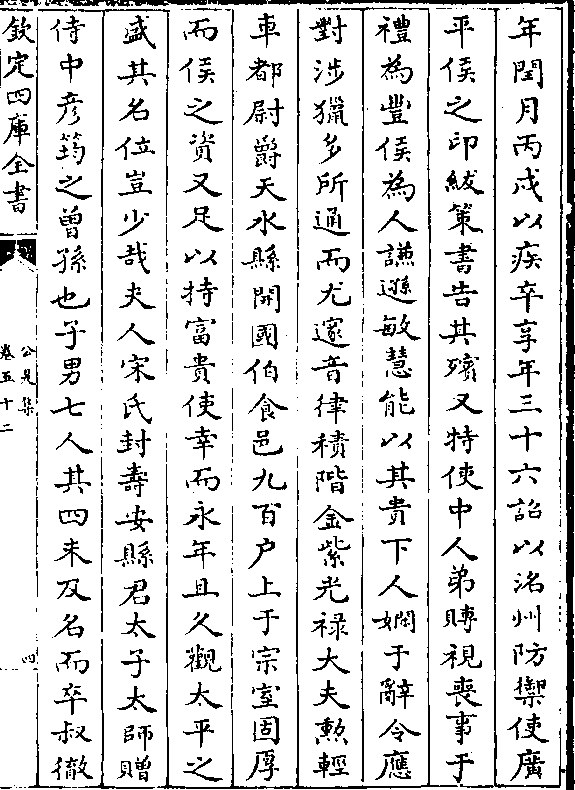 年閏月丙戌以疾卒享年三十六詔以洺州防禦使廣
平侯之印紱策書告其殯又特使中人弟賻視喪事于
禮為豐侯為人謙遜敏慧能以其貴下人嫻于辭令應
對涉獵多所通而尤邃音律積階金紫光祿大夫勲輕
車都尉爵天水縣開國伯食邑九百户上于宗室固厚
而侯之資又足以持富貴使幸而永年且久觀太平之
盛其名位豈少哉夫人宋氏封壽安縣君太子太師贈
侍中彦筠之曾孫也子男七人其四未及名而卒叔徹
欽定四庫全書
公是集
卷五十二
四